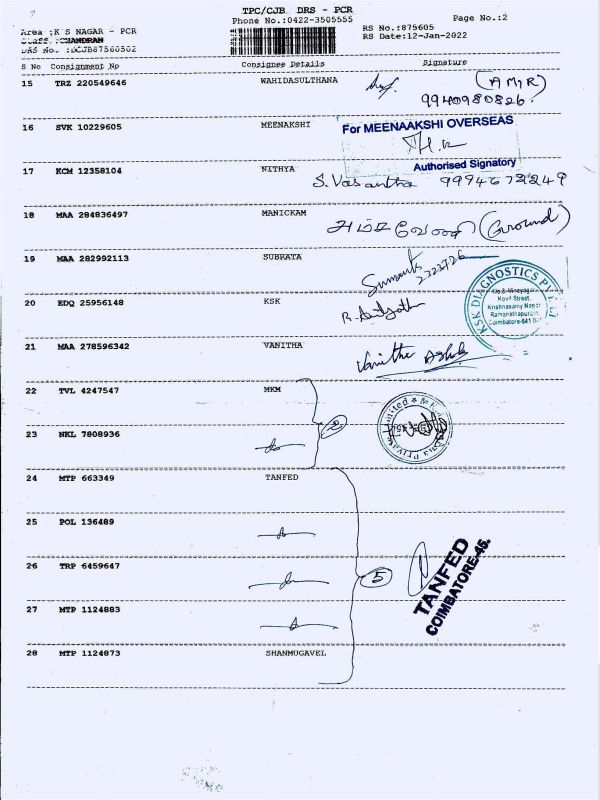 TPC/CJB DRS - PCR
Phone No.:0422-3505555
Page No.:2
Area :K S NAGAR - PCR
RS No.:875605
Staff :CHANDRAN
RS Date:12-Jan-2022
DRS No. :DCJB87560502
S No Consignment No Consignee Details Signature
15 TRZ 220549646 WAHIDASULTHANA (AMIR)
9940980826
16 SVK 10229605 MEENAKSHI For MEENAAKSHI OVERSEAS
Authorised Signatory
17 KCM 12358104 NITHYA S. Vasantha 9994673249
18 MAA 284836497 MANICKAM (Ground)
19 MAA 282992113 SUBRATA
20 EDQ 25956148 KSK
KSK DIAGNOSTICS
Kovil Street,
Krishnasamy Nagar
Ramanathapuram,
Coimbatore-641
21 MAA 278596342 VANITHA Vanitha
22 TVL 4247547 MKM
2
23 NKL 7808936
24 MTP 663349 TANFED
25 POL 136489
26 TRP 6459647 5
TANFED
COIMBATORE-45.
27 MTP 1124883
28 MTP 1124873 SHANMUGAVEL